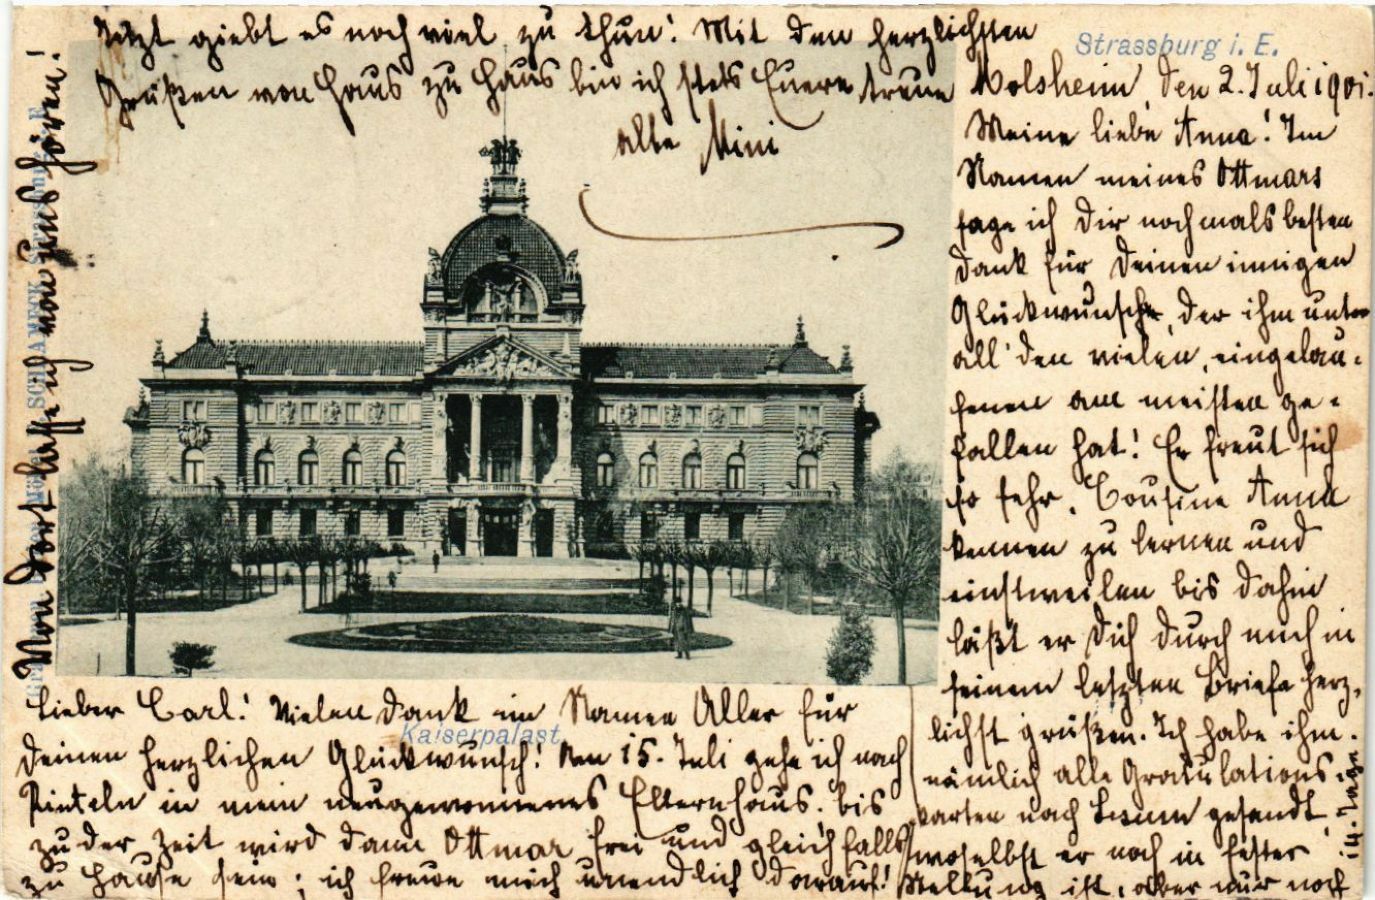 Strassburg i. E.
Molsheim, den 2. Juli 1901.
Meine liebe Anna! Im
Namen meines Ottmars
sage ich Dir nochmals besten
Dank für Deinen innigen
Glückwunsch, der ihm unter
all' den vielen, eingelau-
fenen am meisten ge-
fallen hat! Er freut sich
so sehr, Cousine Anna
kennen zu lernen und
einstweilen bis dahin
läßt er Dich durch mich in
seinem letzten Briefe herz-
lichst grüßen. Ich habe ihm
nämlich alle Gratulations-
karten nach gesandt,
woselbst er noch in fester
Stellung ist, aber nur noch
14. Tage
Lieber Carl! Vielen Dank im Namen Aller für
Deinen herzlichen Glückwunsch! Am 15. Juli gehe ich nach
Rinteln in mein neugewonnenes Elternhaus, bis
zu der Zeit wird dann Ottmar frei und gleichfalls
zu Hause sein; ich freue mich unendlich darauf!
Von dort lasse ich von uns hören!
Jetzt giebt es noch viel zu thun! Mit den herzlichsten
Grüßen von Haus zu Haus bin ich stets Euere treue
alte Mini
Kaiserpalast